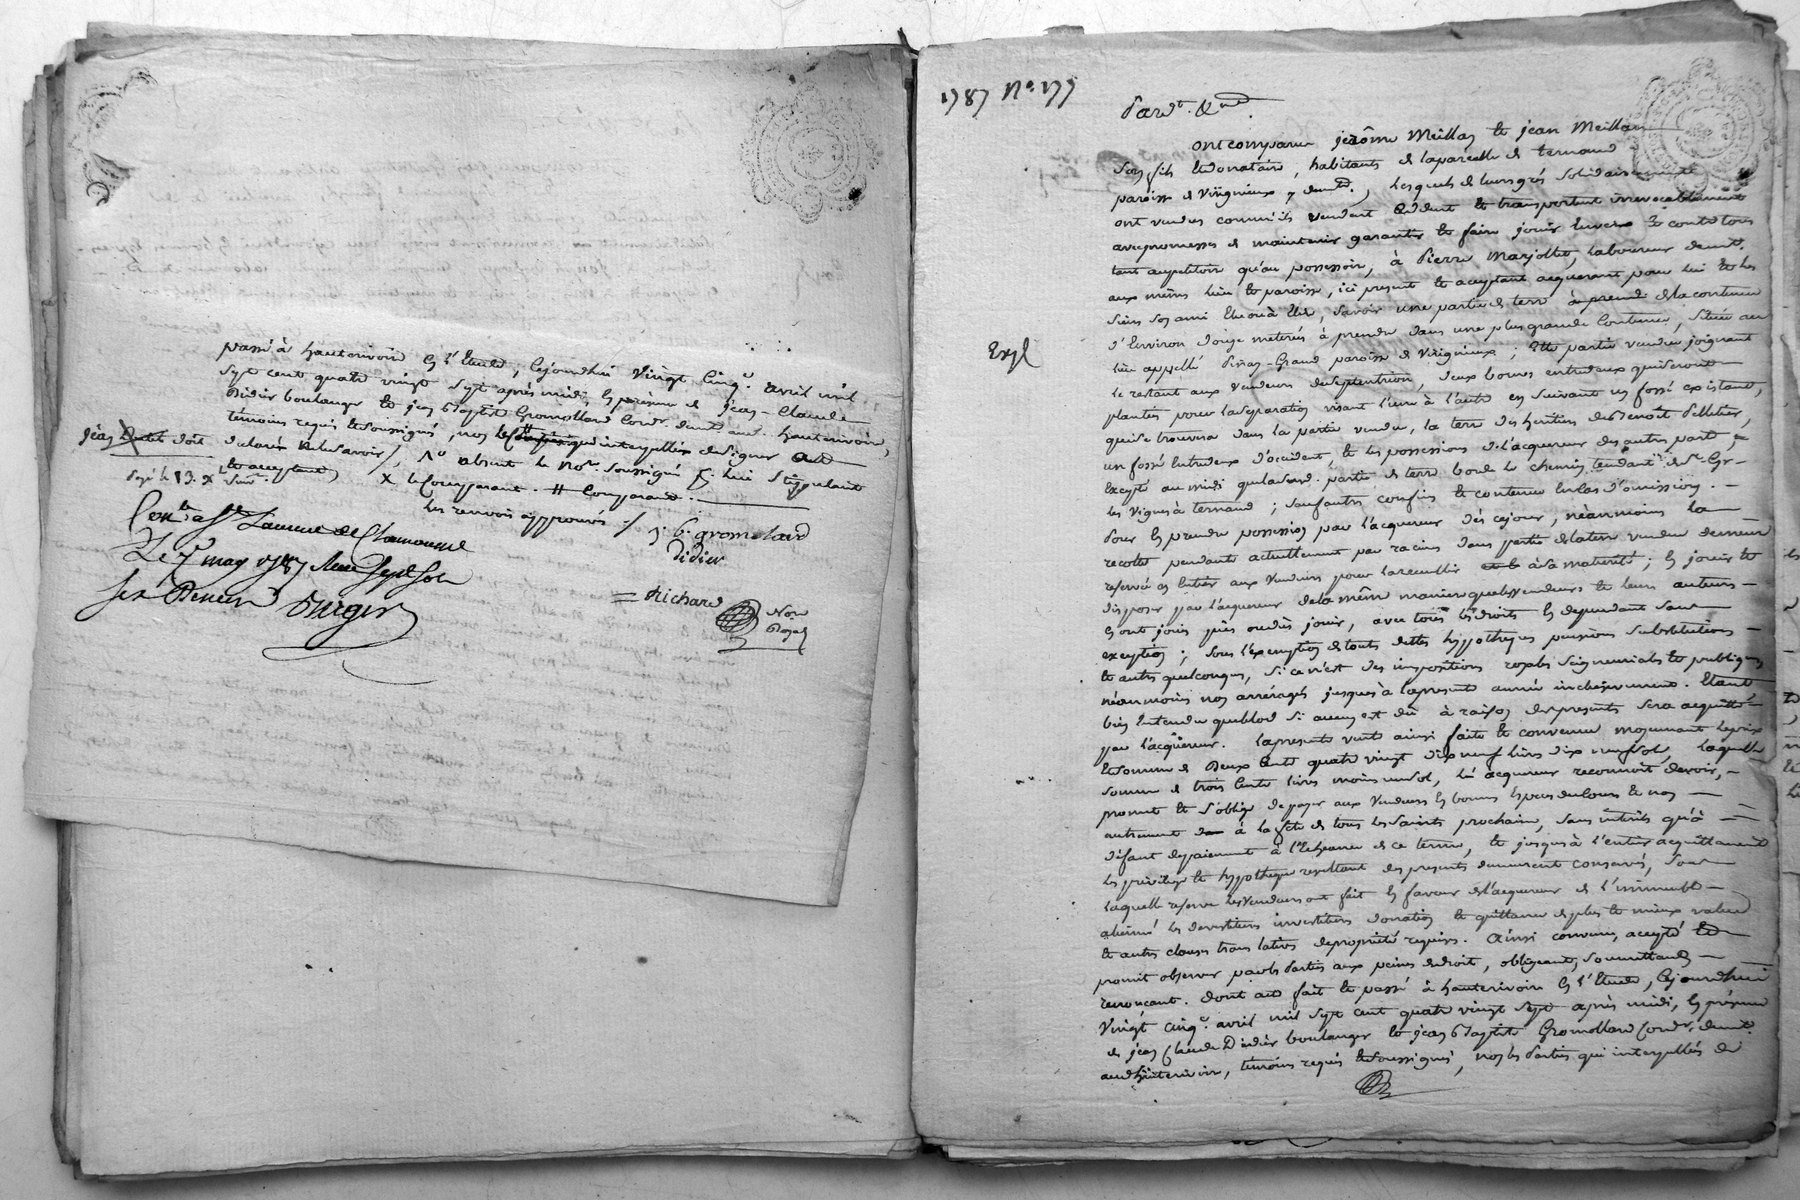 passé à hauterivoire En l'Etude, Cejourdhui Vingt Cinq.e avril mil
sept cent quatre vingt sept après midi, En présence de jean-Claude
Didier boulanger et jean Baptiste Gromollard Cord.r demt aud. hauterivoire,
témoins requis et soussignés, non le Comparant qui interpellés de signer
déclaré ne le savoir
absent le No.re soussigné p.r lui Stipulant
et acceptant x le Comparant. # Comparant.
Les renvois approuvés
Le 7 may 1787
j. b. gromolard
didier
Richard
Not
Royal
1787 No. 177
Pard.t &
ont comparu jérôme Meillan et jean Meillan
son fils et donataire, habitants de la parcelle de Ternand
paroisse de Virignieux y demt., Lesquels de leurs grés solidairement
ont vendus comme ils vendent Cèdent et transportent irrevocablement
avec promesses de maintenir garantir et faire jouir Envers et contre tous
tant au petitoire qu'au possessoire, à Pierre Marjollet, laboureur demt.
aux mêmes lieu et paroisse, ici present et acceptant acquerant pour lui et les
siens son ami Elu ou à Elir, savoir une partie de terre à prendre de la contenue
d'Environ douze meterées à prendre dans une plus grande Contenue, située au
Expé
lieu appellé Pinay-Grand paroisse de Virignieux; Elle partie vendue joignant
le restant aux vendeurs de septentrion, deux bornes entredeux qui seront
plantées pour la séparation visant l'une à l'autre en suivant un fossé existant,
qui se trouvera dans la partie vendue, la terre des heritiers de Benoît Pelletier,
un fossé Entredeux d'occident, et les possessions de l'acquereur des autres parts,
Excepté au midi que la susd. partie de terre borde le chemin tendant de St. Gr-
les Vignes à ternand; sauf autres confins et contenue En Cas d'omission.
Pour En prendre possession par l'acquereur dès cejour, néanmoins la
recolte pendante actuellement par racines dans partie de la terre vendue demeure
reservée en Entier aux Vendeurs pour la recueillir à sa maturité; En jouir et
disposer par l'acquereur de la même maniere que les vendeurs et leurs auteurs
En ont joui pû ou dû jouir, avec tous les droits En dependant sans
exception; sous l'exemption de toutes dettes hypotheques pensions substitutions
et autres quelconques, si ce n'est des impositions royales seigneuriales et publiques
néanmoins non arréragés jusques à la presente année inclusivement. Etant
bien Entendu que le lod si aucun est dû à raison des presentes sera acquitté
par l'acquereur. la presente vente ainsi faite et convenue moyenant le prix
et somme de Deux Cents quatre vingt dix neuf livres dix neuf sol, laquelle
somme de trois Cents livres moins un sol, led. acquereur reconnoit devoir,
promet et s'oblige de payer aux Vendeurs En bonnes Espèces du Cours et non
autrement à la fête de tous les saints prochaine, sans intérêts qu'à
défaut de paiement à l'Echeance de ce terme, et jusques à l'entier acquittement
les privilège et hypotheque resultant des presentes demeurent conservés, sous
laquelle reserve les Vendeurs ont fait En faveur de l'acquereur de l'immeuble
aliéné les devestitures investitures donation et quittance de plus et mieux value
et autres clauses translatives de propriété requises. Ainsi convenu, accepté
promit observer par les Parties aux peines de droit, obligeant, soumettant
renonçant. Dont acte fait et passé à hauterivoire En l'Etude, Cejourdhui
Vingt Cinq.e avril mil sept cent quatre vingt sept après midi, En présence
de jean Claude Didier boulanger et jean Baptiste Gromollard Cord.r demt.
aud hauterivoire, témoins requis et soussignés, non les Parties qui interpellés de